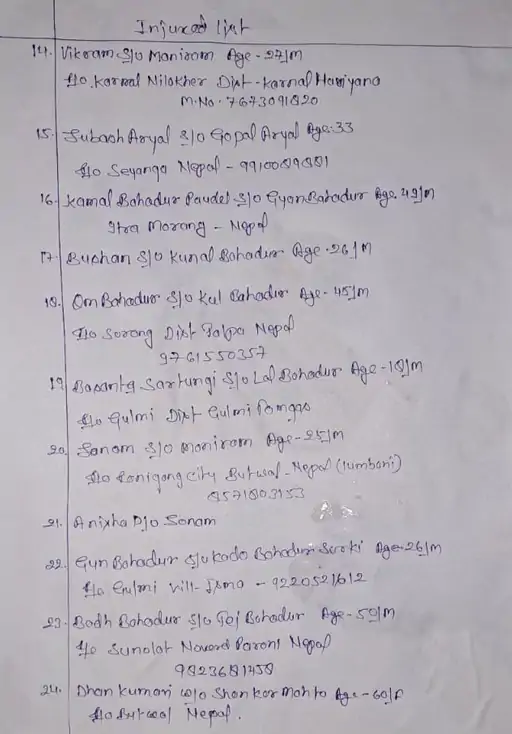 Injured list
14. Vikram S/o Maniram Age - 27/M
H/o Karnal Nilokher Dist - Karnal Hariyana
M.No. 7673091820
15. Subash Aryal S/o Gopal Aryal Age: 33
H/o Seyanga Nepal - 9910089881
16. Kamal Bahadur Paudel S/o Gyan Bahadur Age 49/M
Itra Morang - Nepal
17. Bushan S/o Kunal Bahadur Age - 26/M
18. Om Bahadur S/o Kul Bahadur Age - 45/M
H/o Sorong Dist Palpa Nepal
9761550357
19. Basanta Sartungi S/o Lal Bahadur Age - 18/M
H/o Gulmi Dist Gulmi Tamgas
20. Sanam S/o Maniram Age - 25/M
H/o Ranigang city Butwal - Nepal (lumbani)
8571803153
21. Anisha D/o Sonam
22. Gun Bahadur S/o Kado Bahadur Sarki Age - 26/M
H/o Gulmi Vill - Isma - 9220521612
23. Bodh Bahadur S/o Tej Bahadur Age - 50/M
H/o Sunolot Parani Nepal
9823681458
24. Dhan Kumari w/o Shankar Mahto Age - 60/F
H/o Butwal Nepal.